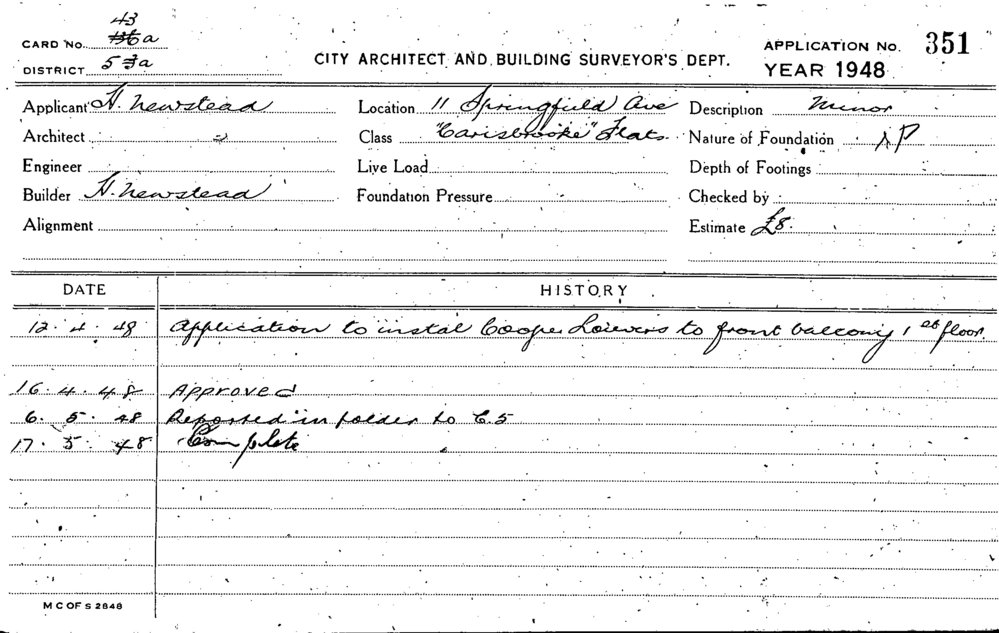 43
CARD No. 136a
DISTRICT 5 3a
CITY ARCHITECT AND BUILDING SURVEYOR'S DEPT.
APPLICATION No. 351
YEAR 1948
Applicant H. Newstead Location 11 Springfield Ave Description Minor
Architect Class "Carisbrooke" Flats. Nature of Foundation
Engineer Live Load Depth of Footings
Builder H. Newstead Foundation Pressure Checked by
Alignment Estimate £8.
DATE HISTORY
12.4.48 Application to instal Cooper Louvers to front balcony 1st floor.
16.4.48 Approved
6.5.48 Reported in folder to C.5
17.5.48 Complete
M C OF S 2848